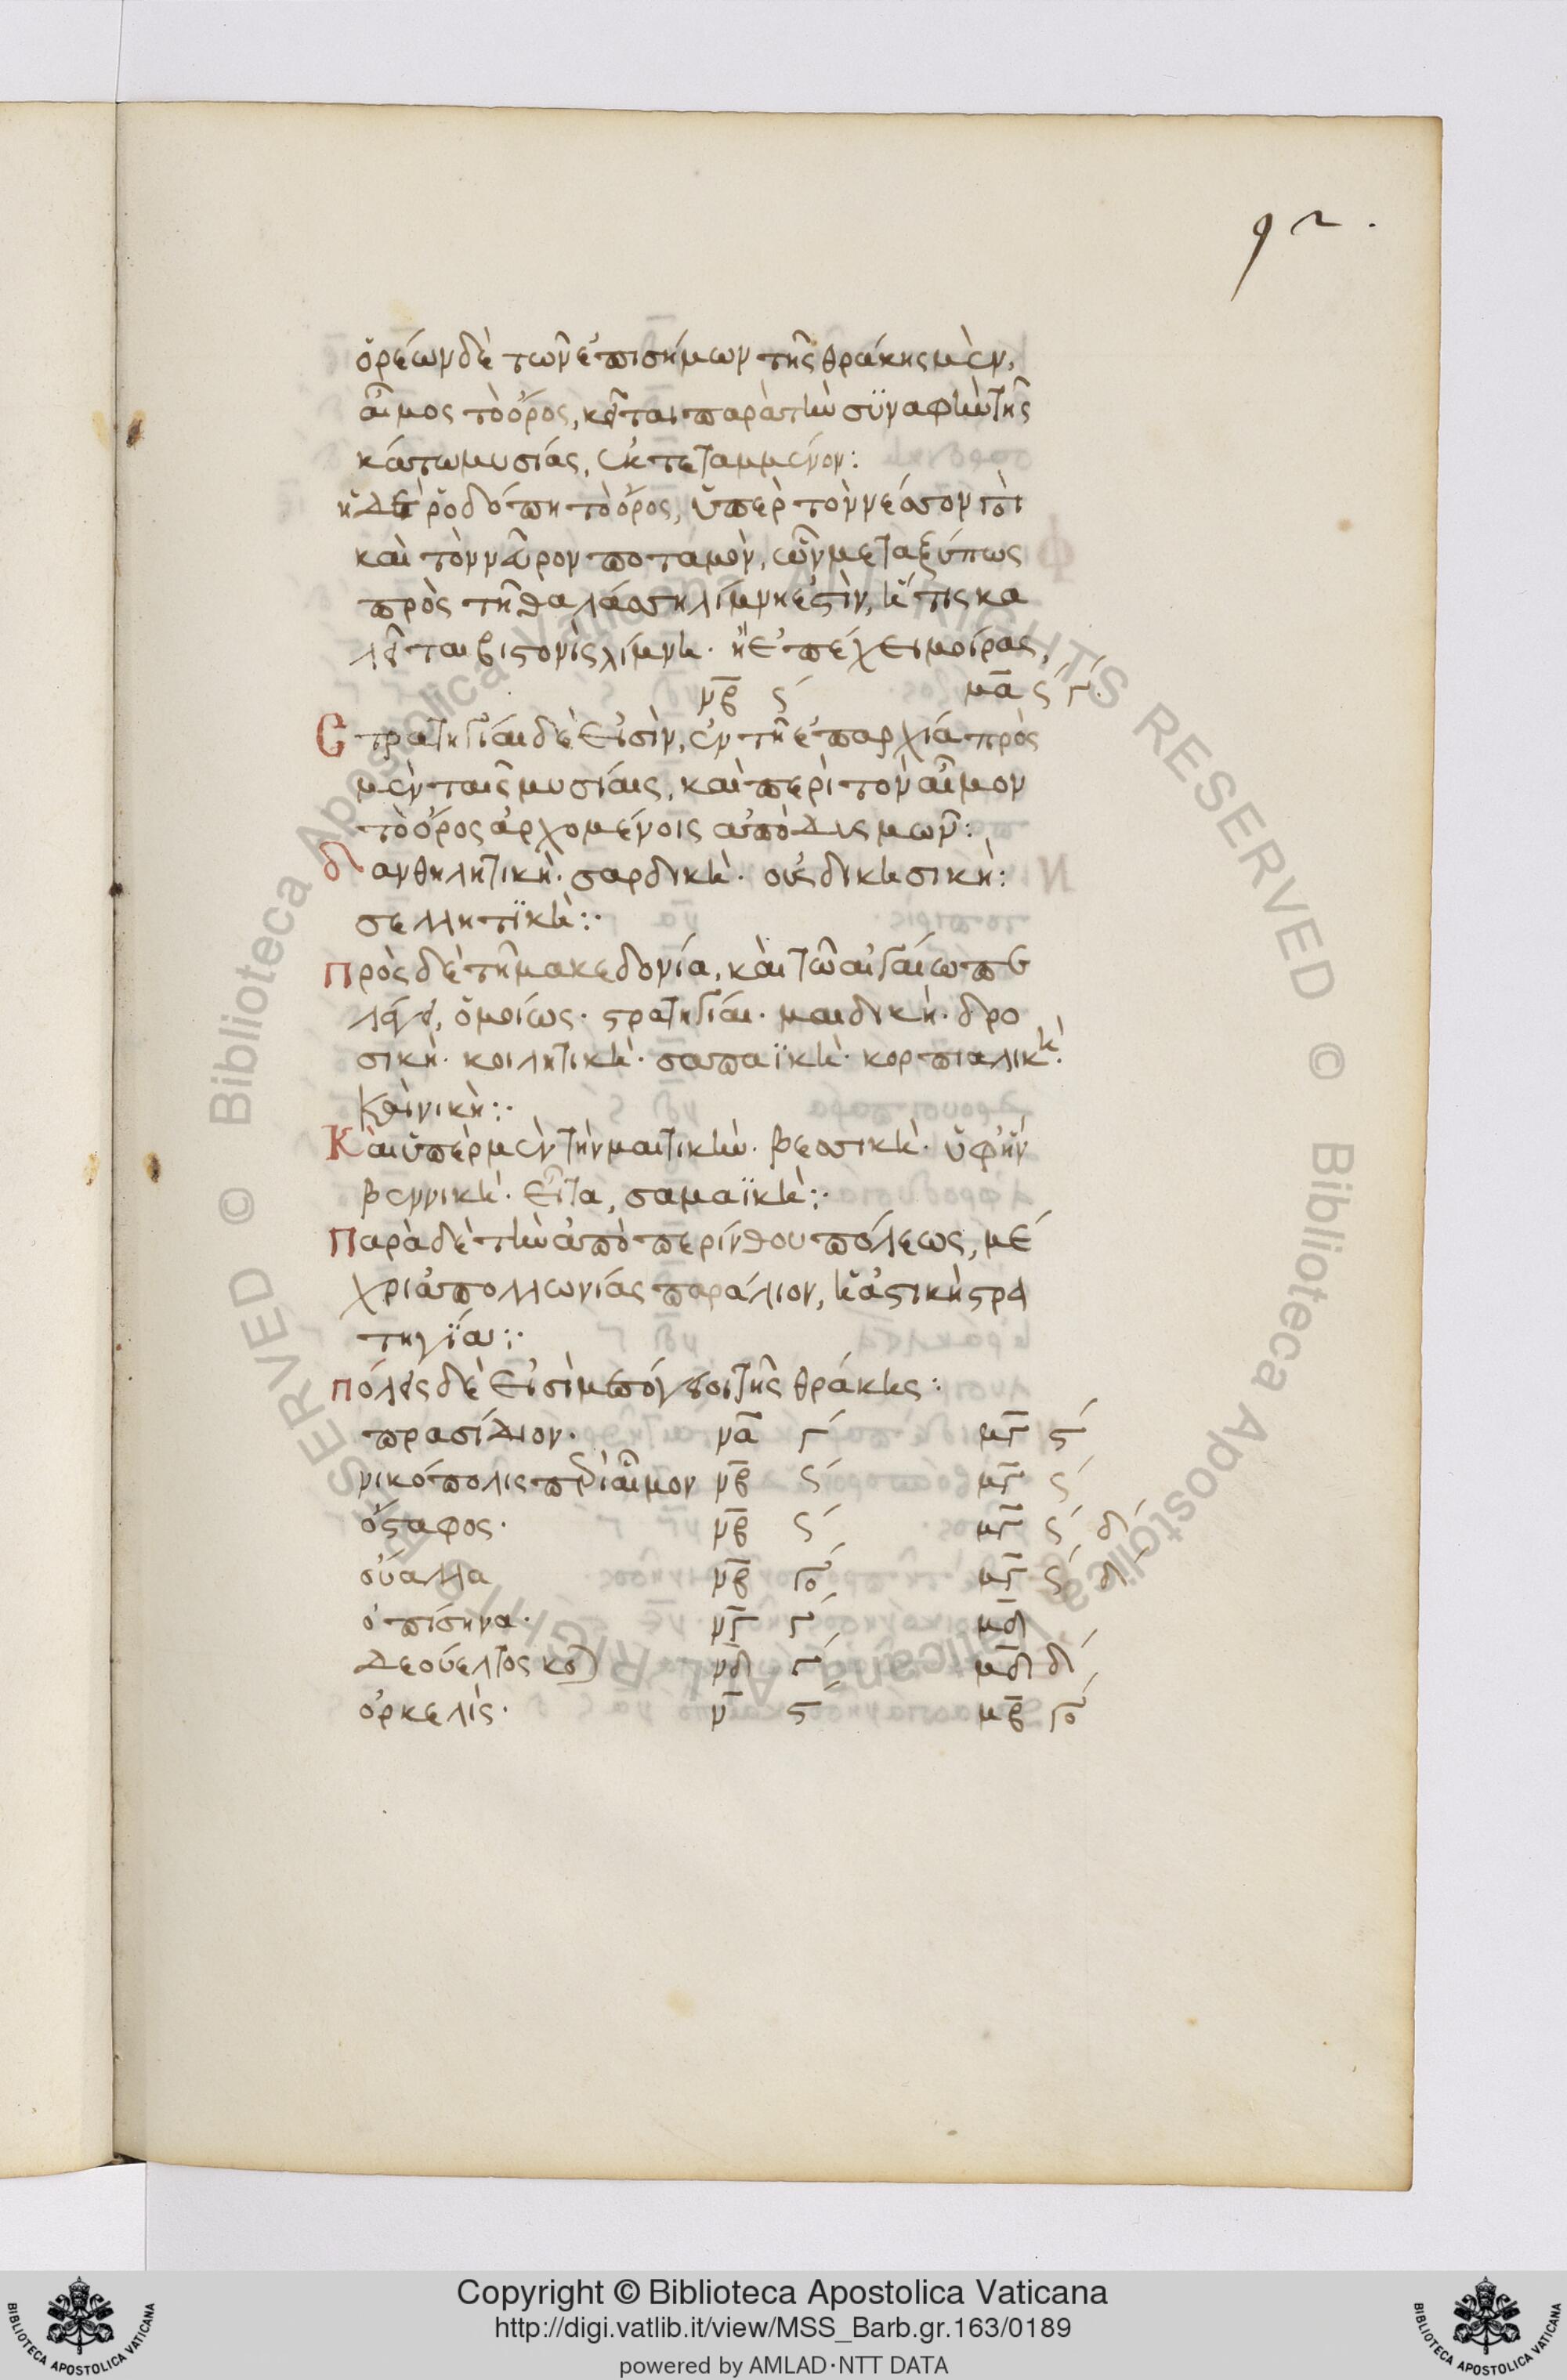 92.
ὀρέων δὲ τῶν ἐπισήμων τῆς θράκης μὲν,
αἷμος τὸ ὄρος, κεῖται παρὰ τὴν συναφὴν τῆς
κάτω μυσίας, ἐκτεταμμένον:
ἡ δὲ ῥοδόπη τὸ ὄρος, ὑπὲρ τὸν νέστον
καὶ τὸν ναῦρον ποταμὸν, ὧν μεταξύ πως
πρὸς τῆ θαλάσση λίμνη ἐστὶν, ἥτις κα
λεῖται βιστονὶς λίμνη. ἣ ἐπέχει μοίρας,
νβ ϛ΄ μα ϛ΄ γ΄.
Στρατηγίαι δὲ εἰσὶν, ἐν τῆ ἐπαρχία πρὸς
μὲν ταῖς μυσίαις, καὶ περὶ τὸν αἷμον
τὸ ὄρος ἀρχομένοις ἀπὸ δυσμῶν:
δανθηλητικὴ. σαρδικὴ. οὐσδικησικὴ:
σελλητϊκὴ:·
Πρὸς δὲ τῆ μακεδονία, καὶ τῶ αἰγαίω πε
λάγει, ὁμοίως. στρατηγίαι. μαιδικὴ. δρο
σικὴ. κοιλητικὴ. σαπαϊκὴ. κορπιαλικὴ.
καϊνικὴ:·
Καὶ ὑπὲρ μὲν τὴν μαιτικὴν. βεσσικὴ. ὑφ' ἣν
βεννικὴ. εἶτα, σαμαϊκὴ:·
Παρὰ δὲ τὴν ἀπὸ περίνθου πόλεως, μέ
χρι ἀπολλωνίας παράλιον, ἡ ἀστικὴ στρα
τηγΐα:·
πόλεις δὲ εἰσὶ μεσόγειοι τῆς θράκης:
πρασίδιον. να γ΄ μγ ϛ΄
νικόπολις περὶ αἷμον νβ ϛ΄ μγ ϛ΄
ὄσταφος. νβ ϛ΄ μγ ϛ΄ δ΄
οὐαλλα νβ γο΄ μγ ϛ΄ δ΄
ὀπίσηνα. νγ γ΄ μδ
δεούελτος κο) νδ γ΄ μδ δ΄
ὀρκελὶς. ν ϛ΄ μβ γο΄
Copyright © Biblioteca Apostolica Vaticana
http://digi.vatlib.it/view/MSS_Barb.gr.163/0189
powered by AMLAD·NTT DATA